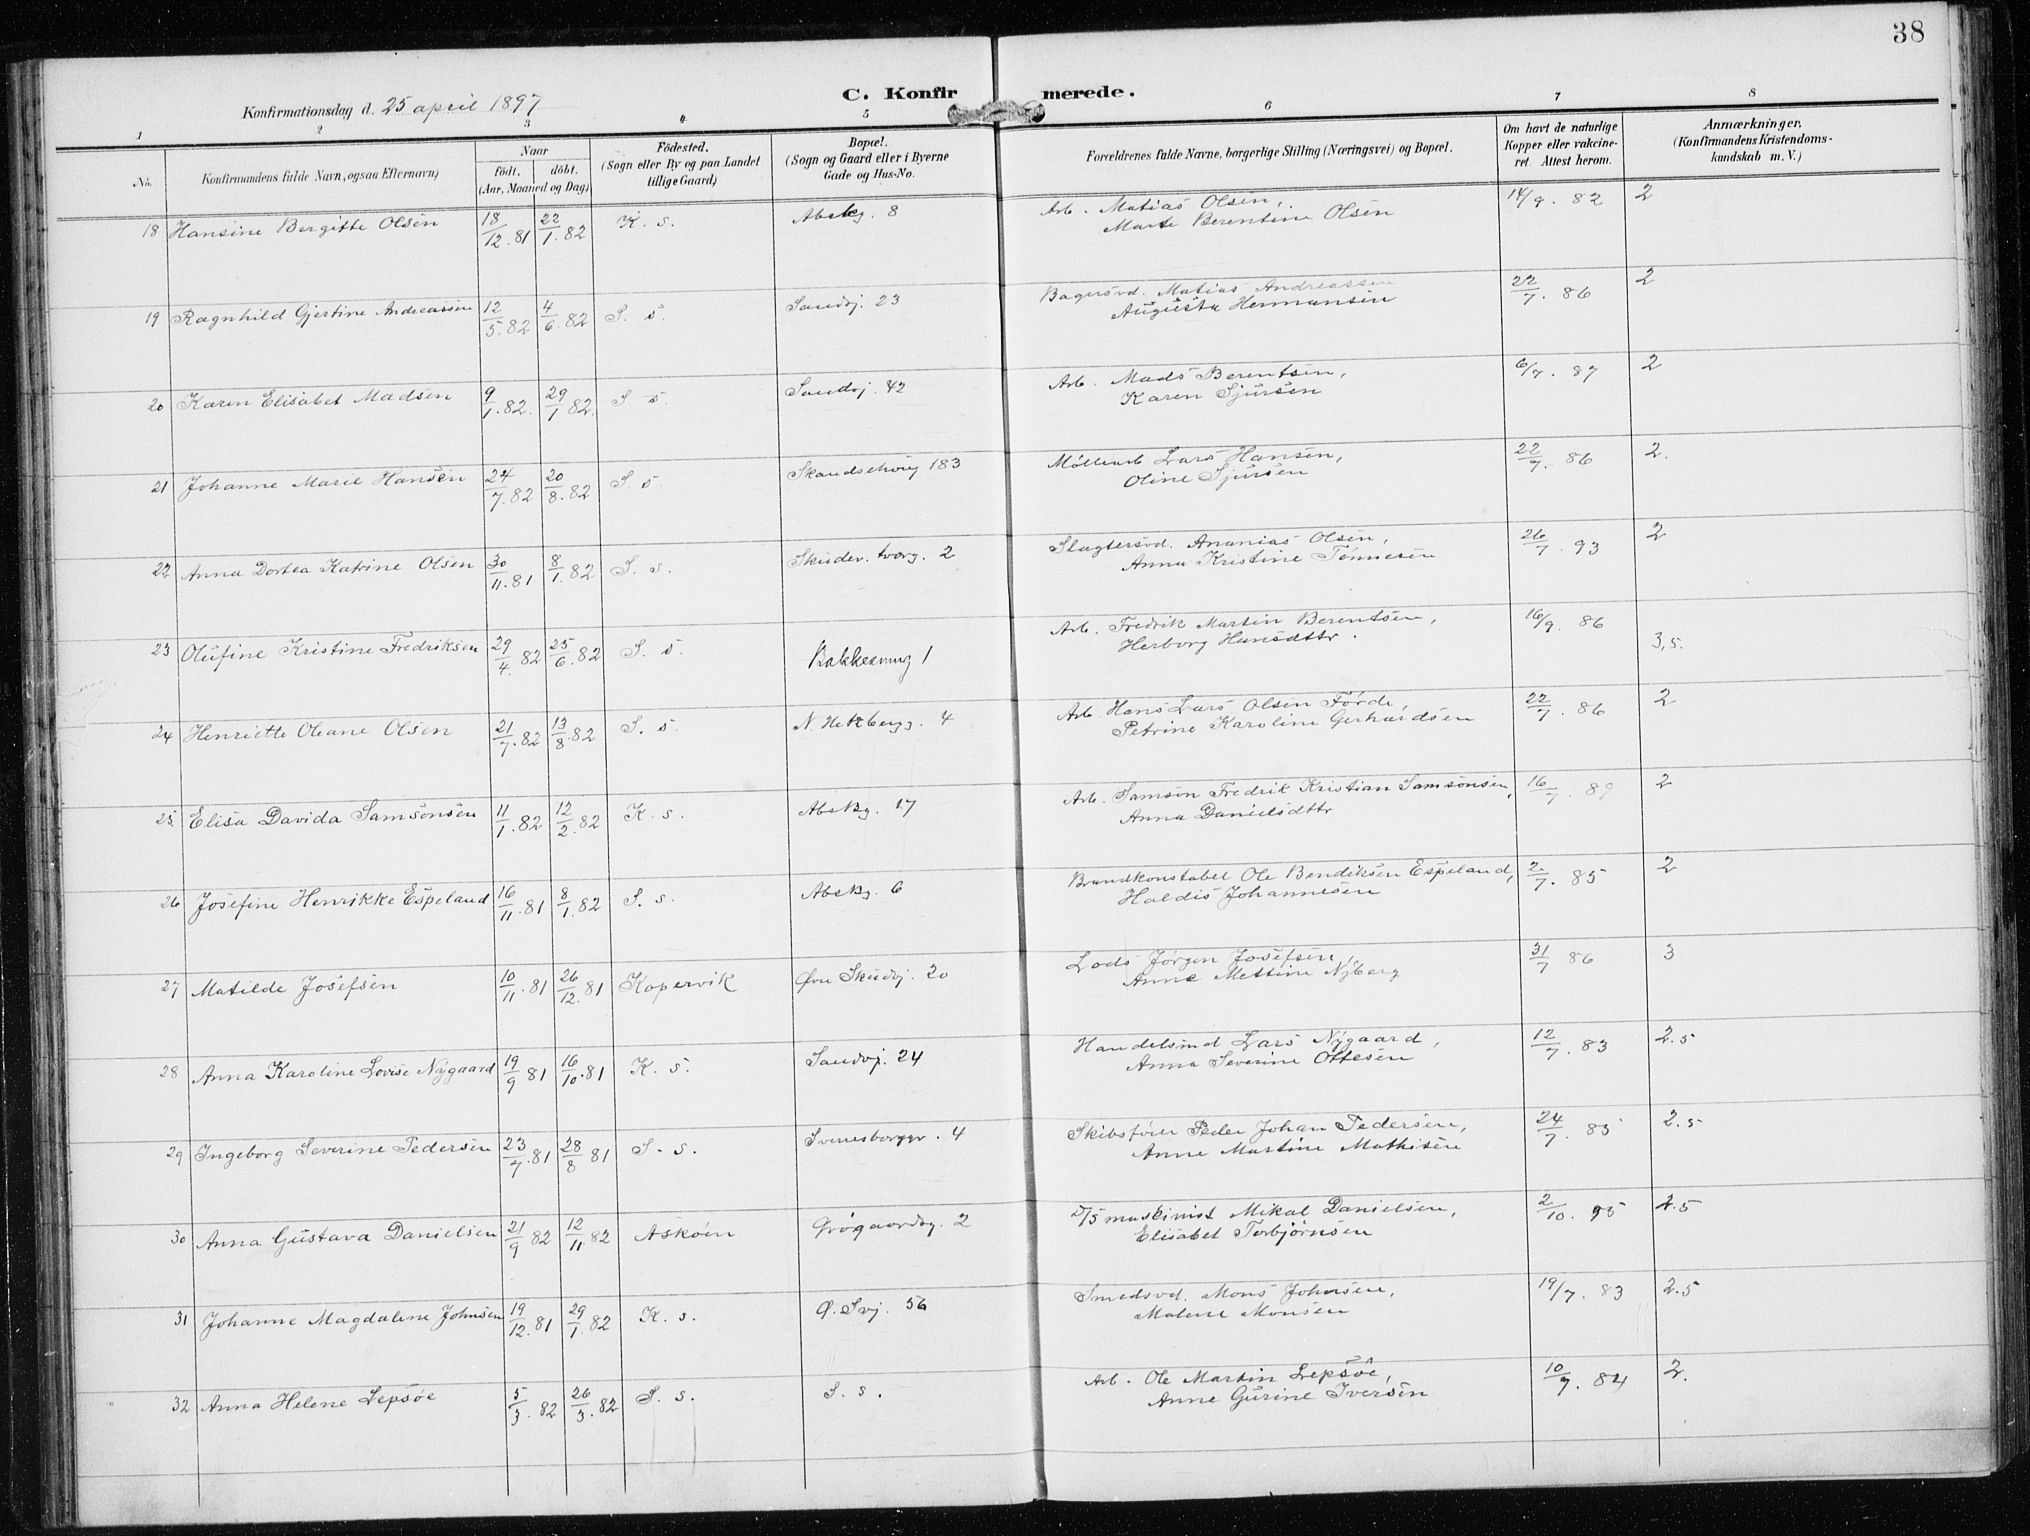 38
C. Konfirmerede.
Konfirmationsdag d. 25 april 1897
1 2 3 4 5 6 7 8
No. Konfirmandens fulde Navn, ogsaa Efternavn) Naar födt. döbt. (Aar, Maaned og Dag) Födested. (Sogn eller By og paa Landet tillige Gaard) Bopæl. (Sogn og Gaard eller i Byerne Gade og Hus-No. Forældrenes fulde Navne, borgerlige Stilling (Næringsvei) og Bopæl. Om havt de naturlige Kopper eller vakcineret Attest herom. Anmærkninger, (Konfirmandens Kristendomskundskab m. V.)
18 Hansine Bergitte Olsen 18/12.81 22/1.82 K. s. Absbg. 8 Arb. Matias Olsen, 14/9. 82 2
Marte Berentine Olsen
19 Ragnhild Gjertine Andreassen 12/5.82 4/6.82 S. s. Sandvj. 23 Bagersvd. Matias Andreassen 22/7. 86 2
Augusta Hermansen
20 Karen Elisabet Madsen 9/1.82. 29/1.82. S. s. Sandvj. 42 Arb. Mads Berentsen, 6/7. 87 2
Karen Sjursen
21 Johanne Marie Hansen 24/7.82 20/8.82 S. s. 183 Møllearb Lars Hansen, 22/7. 86 2.
Oline Sjursen
22 Anna Dortea Katrine Olsen 30/11.81 8/1.82 S. s. Skudev. tværg. 2 Slagtersvd. Ananias Olsen, 26/7. 93 2
Anna Kristine Tønnesen
23 Olufine Kristine Fredriksen 29/4.82 25/6.82 S. s. Bakkesmug 1 Arb. Fredrik Martin Berentsen, 16/9. 86 3,5.
Herborg Hansdttr.
24 Henriette Oleane Olsen 21/7.82 13/8.82 S. s. N. Hetzbergg. 4 Arb. Hans Lars Olsen Førde, 22/7. 86 2
Petrine Karoline Gerhardsen
25 Elisa Davida Samsonsen 11/1.82 12/2.82 K. s. Absbg. 17 Arb. Samson Fredrik Kristian Samsonsen, 16/7. 89 2
Anna Danielsdttr
26 Josefine Henrikke Espeland 16/11.81 8/1.82 S. s. Absbg. 6 Brandkonstabel Ole Bendiksen Espeland, 2/7. 85 2
Haldis Johannesen
27 Matilde Josefsen 10/11.81 26/12.81 Kopervik Øvre Skudvj. 20 Lods Jørgen Josefsen, 31/7 86 3
Anne Mettine Nyberg
28 Anna Karoline Lovise Nygaard 19/9 81 16/10.81 K. s. Sandvj. 24 Handelsmd Lars Nygaard, 12/7. 83 2.5
Anna Severine Ottesen
29 Ingeborg Severine Pedersen 23/7.81 28/8 81 S. s. 4 Skibsfører Peder Johan Pedersen, 24/7. 85 2.5
Anne Martine Mathisen
30 Anna Gustava Danielsen 21/9 82 12/11.82 Askøen Grøgaardsg. 2 D/S maskinist Mikal Danielsen, 2/10. 95 2.5
Elisabet Torbjørnsen
31 Johanne Magdalene Johnsen 19/12.81 29/1.82 K. s. Ø. Svj. 56 Smedsvd. Mons Johnsen, 19/7. 83 2.5
Malene Monsen
32 Anna Helene Lepsøe 5/3.82 26/3.82 S. s. S. s. Arb. Ole Martin Lepsøe, 10/7. 84 2.
Anne Gurine Iversen